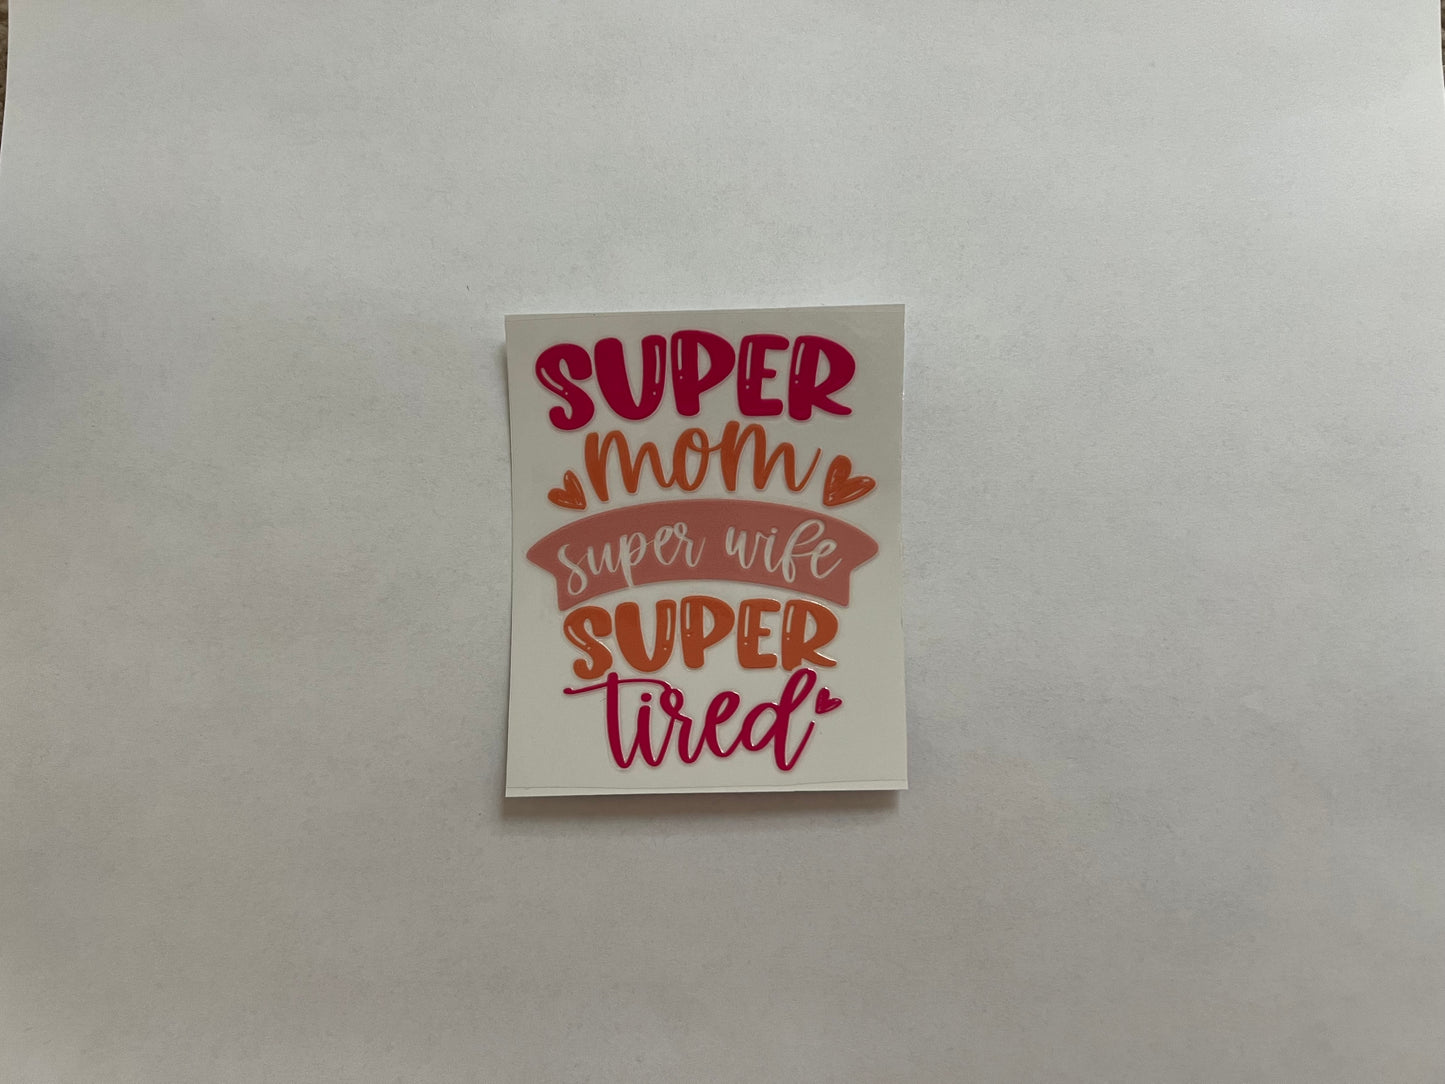 SUPER
mom
super wife
SUPER
tired